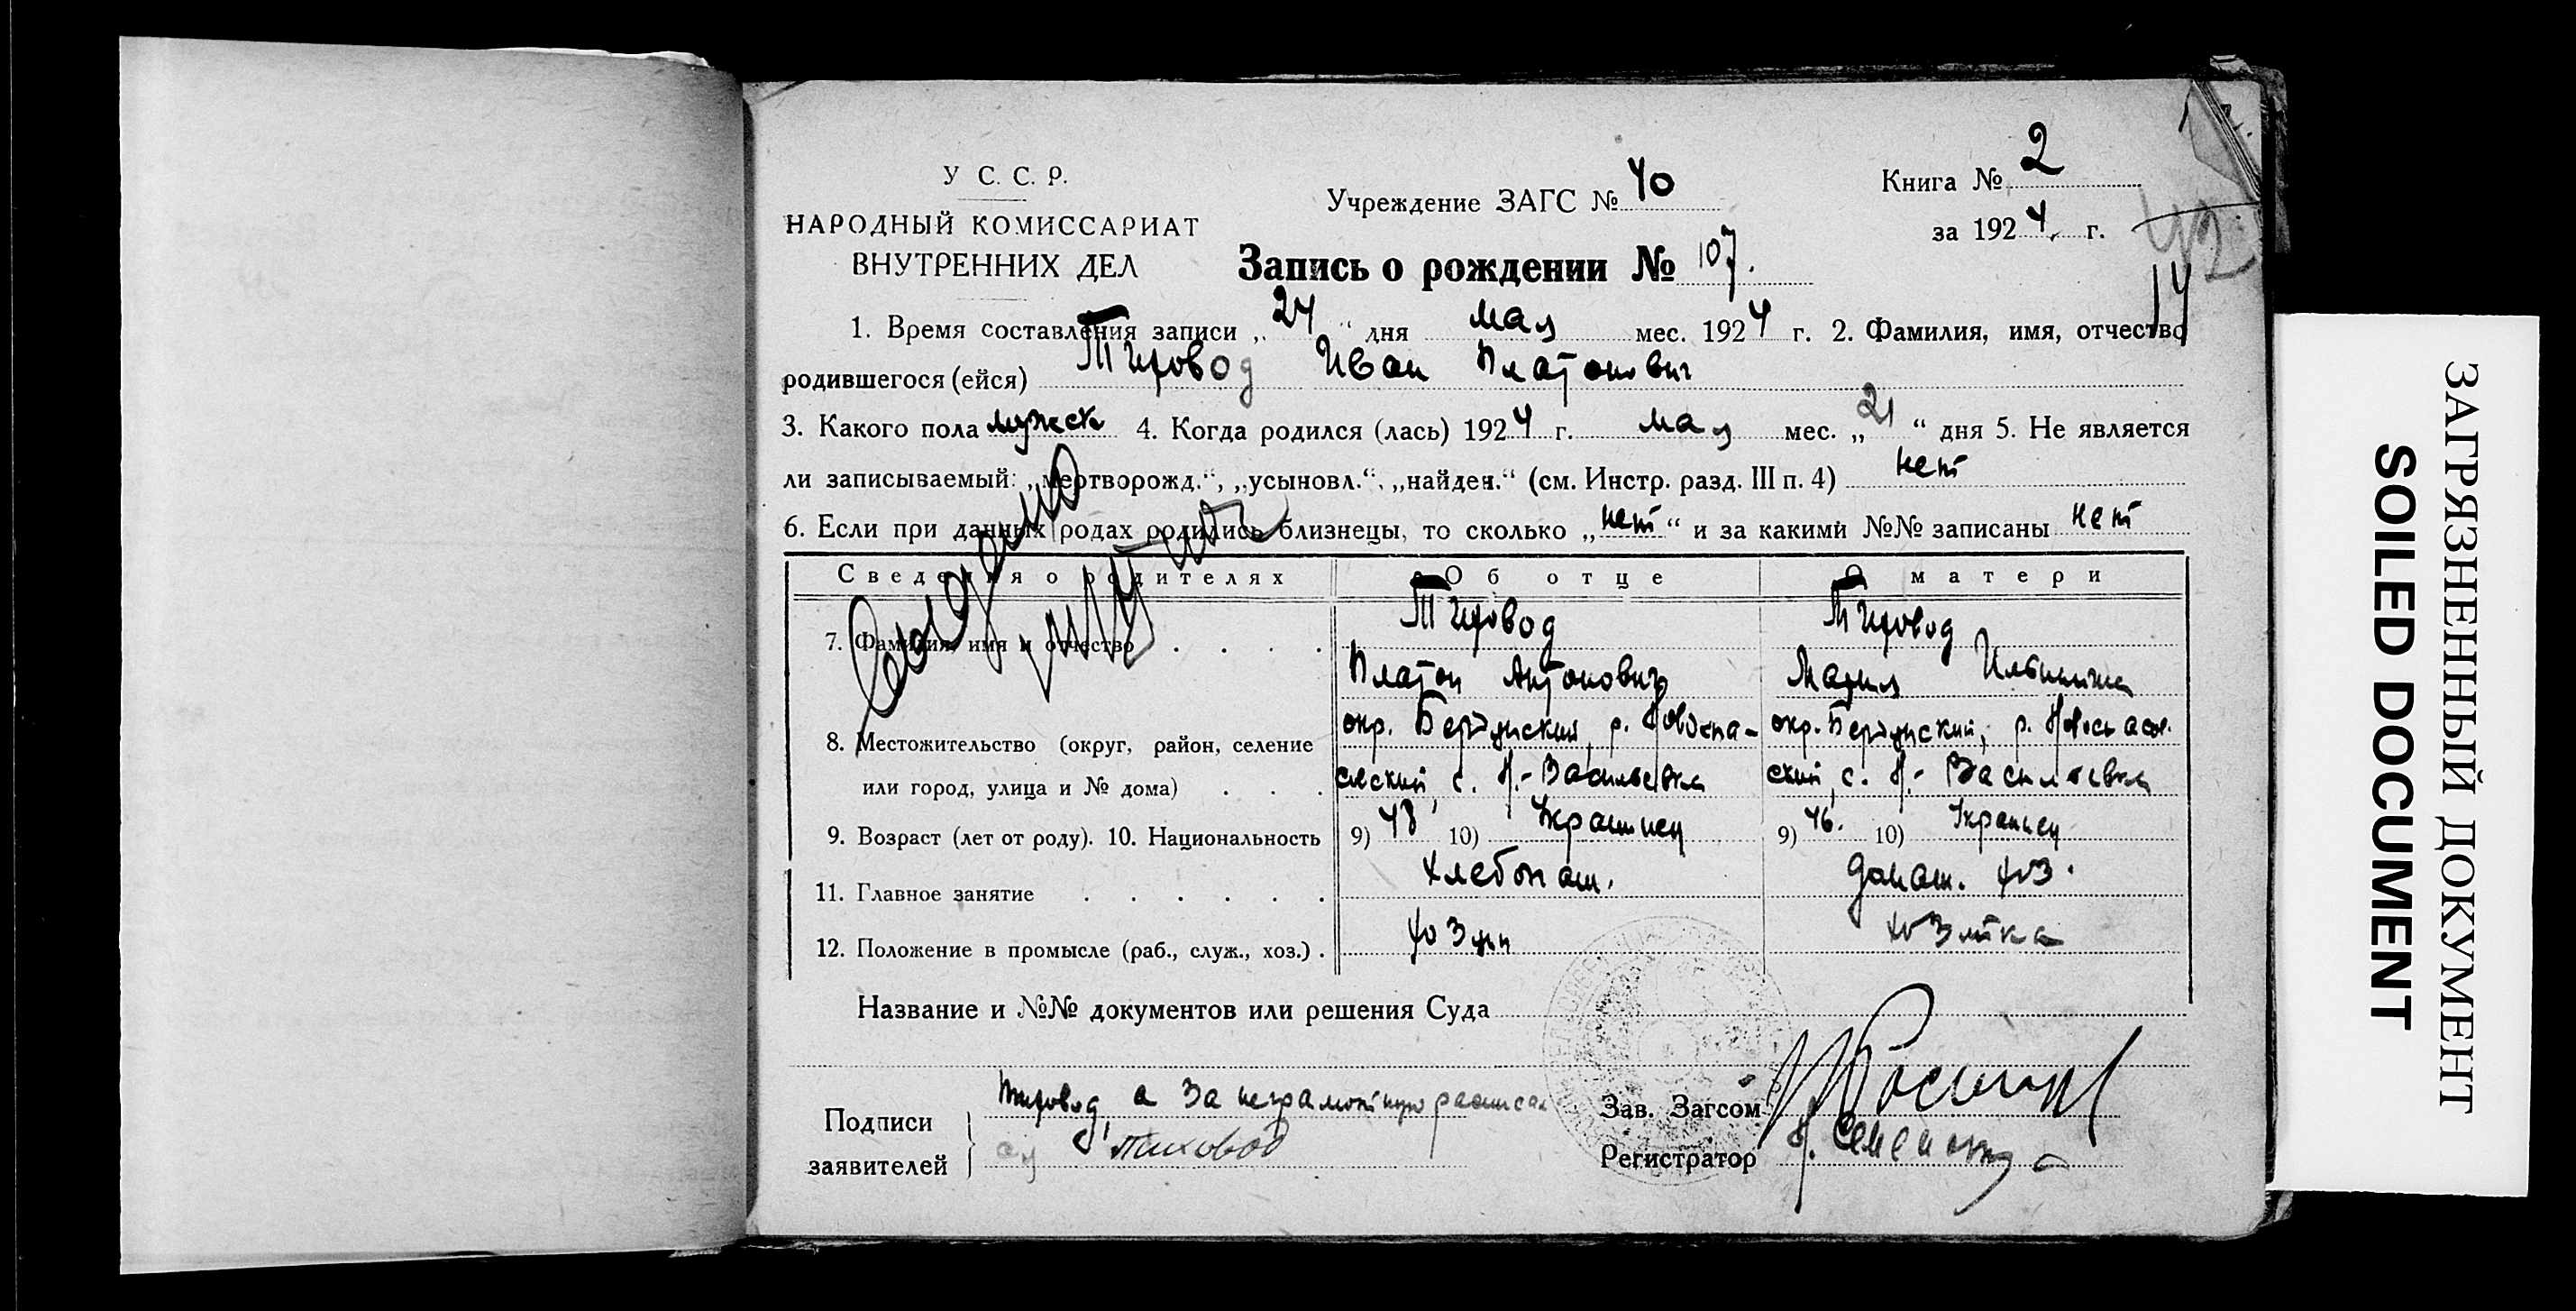 У С. С. Р.
НАРОДНЫЙ КОМИССАРИАТ
ВНУТРЕННИХ ДЕЛ
Учреждение ЗАГС № 40
Книга № 2
за 1924 г.
Запись о рождении № 107.
1. Время составления записи „24“ дня мая мес. 1924 г. 2. Фамилия, имя, отчество
родившегося (ейся) Тиховод Иван Платонович
3. Какого пола мужск 4. Когда родился (лась) 1924 г. мая мес. „21“ дня 5. Не является
ли записываемый: „мертворожд.“, „усыновл.“, „найден.“ (см. Инстр. разд. III п. 4) нет
6. Если при данных родах родились близнецы, то сколько „нет“ и за какими №№ записаны нет
Сведения о родителях Об отце О матери
7. Фамилия, имя и отчество Тиховод Тиховод
Платон Антонович Мария Ильинична
8. Местожительство (округ, район, селение окр. Бердянский, р. Новоспа- окр. Бердянский, р. Новоспасов.
или город, улица и № дома) сский, с. Н.-Васильевка ский, с. Н.-Васильевка
9. Возраст (лет от роду). 10. Национальность 9) 48 10) Украинец 9) 46. 10) Украинец
11. Главное занятие Хлебопаш. домаш. хоз.
12. Положение в промысле (раб., служ., хоз.) хозяин хозяйка
Название и №№ документов или решения Суда
Подписи заявителей Тиховод, а за неграмотную расписал
Тиховод
Зав. Загсом
Регистратор
ЗАГРЯЗНЕННЫЙ ДОКУМЕНТ
SOILED DOCUMENT